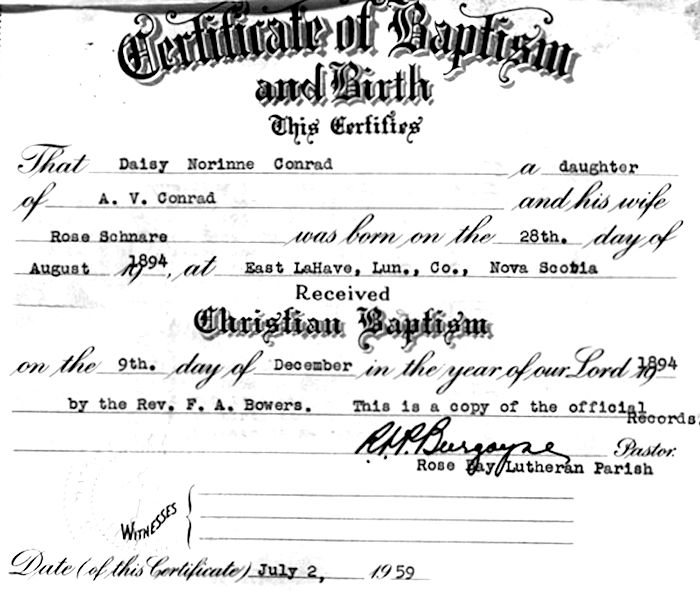 Certificate of Baptism
and Birth
This Certifies
That Daisy Norinne Conrad a daughter
of A. V. Conrad and his wife
Rose Schnare was born on the 28th. day of
August 19 1894, at East LaHave, Lun., Co., Nova Scotia
Received
Christian Baptism
on the 9th. day of December in the year of our Lord 19 1894
by the Rev. F. A. Bowers. This is a copy of the official Records.
R.H.P. Burgoyne Pastor.
Rose Bay Lutheran Parish
WITNESSES
Date (of this Certificate) July 2, 1959